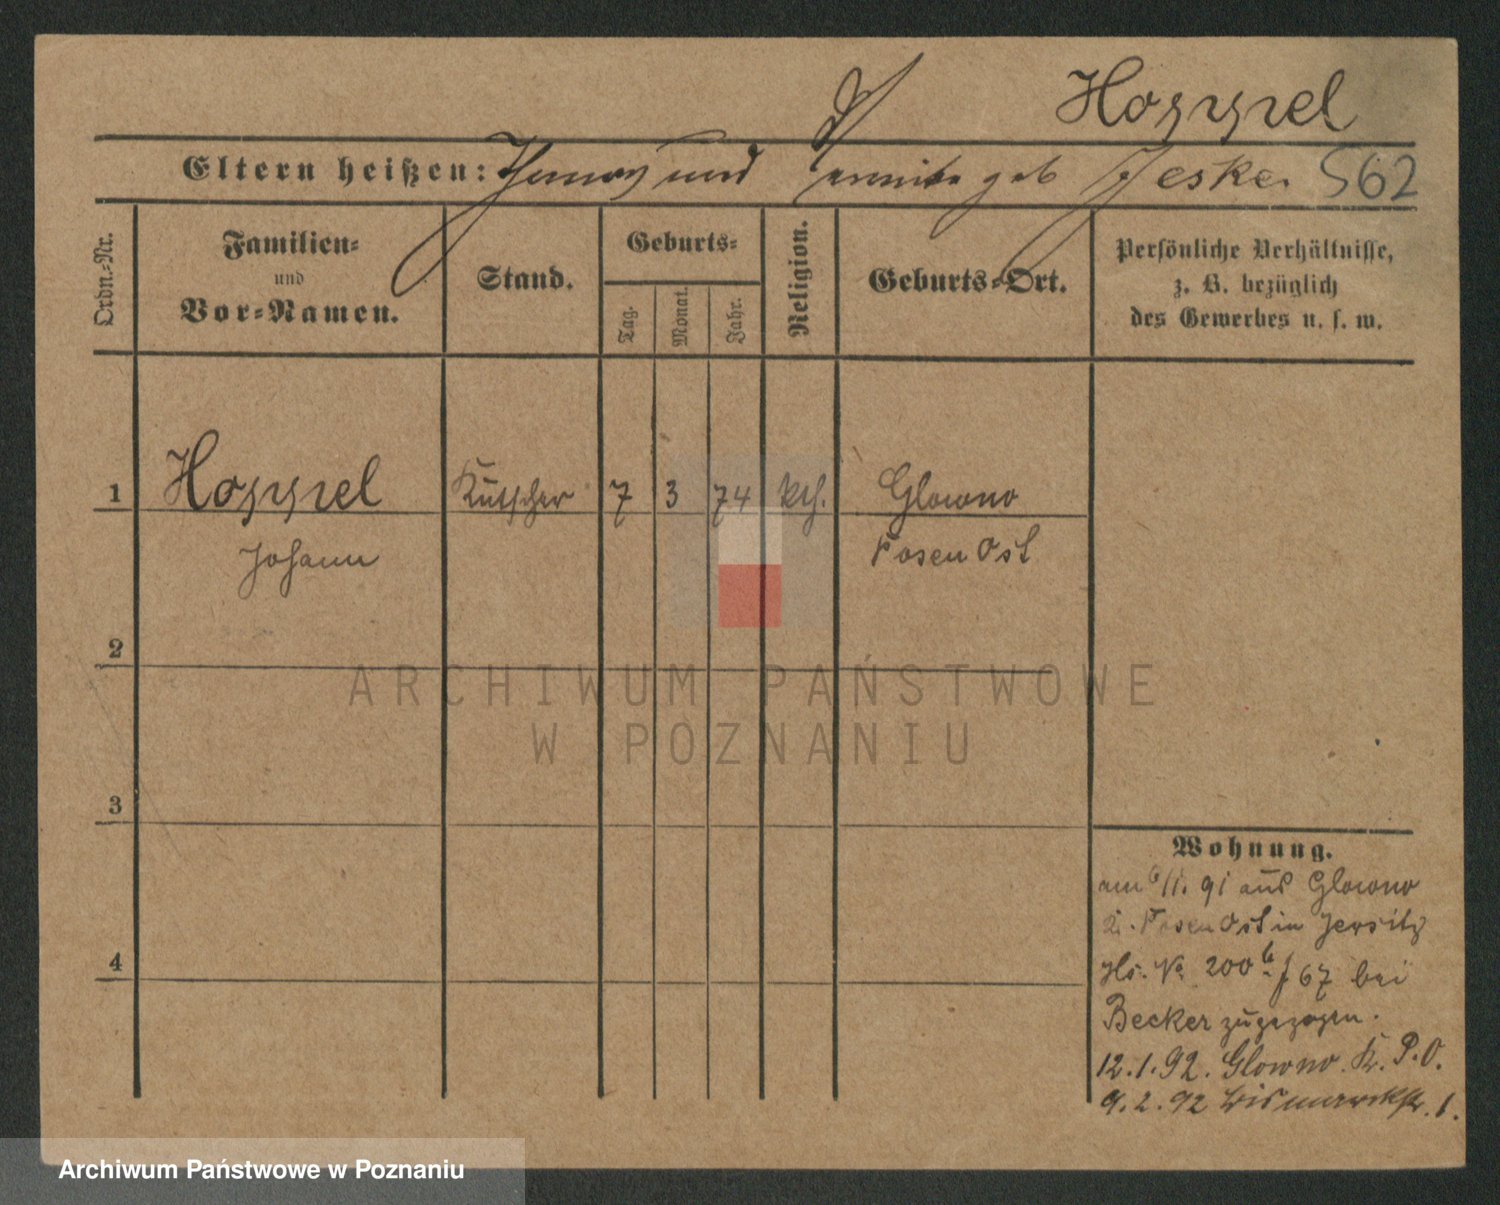 Hoppel
Eltern heißen: und geb Jeske. 562
Ordn.-Nr.
Familien-
und
Vor-Namen.
Stand.
Geburts-
Tag.
Monat.
Jahr.
Religion.
Geburts-Ort.
Persönliche Verhältnisse,
z. B. bezüglich
des Gewerbes u. s. w.
1 Hoppel Kutscher 7 3 74 kth. Glowno
Johann Posen Ost
2
3
4
Wohnung.
am 6/11. 91 aus Glowno
Posen Ost in Jersitz
Hs. No 200 b f 67 bei
Becker zugezogen.
12.1.92. Glowno. Kr. P.O.
9.2.92 Bismarckstr. 1.
ARCHIWUM PAŃSTWOWE
W POZNANIU
Archiwum Państwowe w Poznaniu